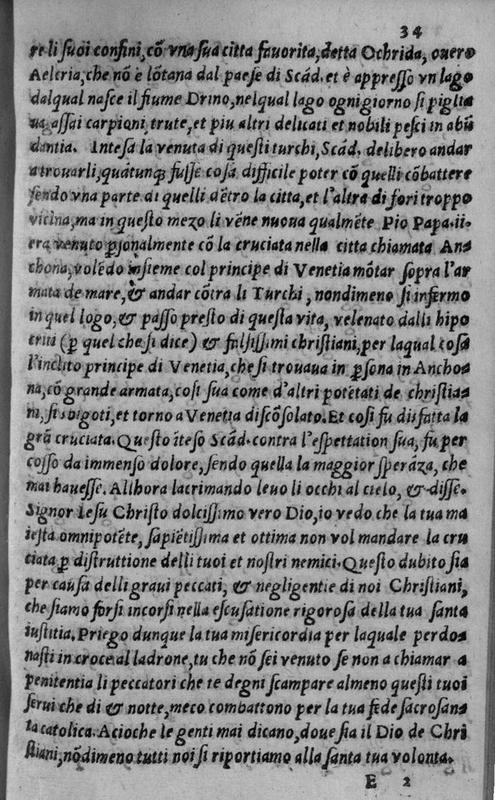 34
re li suoi confini, cõ vna sua citta fauorita, detta Ochrida, ouero
Aelcria, che nõ è lõtana dal paese di Scãd. et è appresso vn lago
dalqual nasce il fiume Drino, nelqual lago ogni giorno si piglia
ua assai carpioni, trute, et piu altri delicati et nobili pesci in abũ
dantia. Intesa la venuta di questi turchi, Scãd. delibero andar
a trouarli, quãtunqꝫ fusse cosa difficile poter cõ quelli cõbattere
sendo vna parte di quelli dẽtro la citta, et l'altra di fori troppo
vicina, ma in questo mezo li vẽne nuoua qualmẽte Pio Papa .ii.
era venuto ꝑsonalmente cõ la cruciata nella citta chiamata An⸗
chona, volẽdo insieme col principe di Venetia mõtar sopra l'ar
mata de mare, & andar cõtra li Turchi, nondimeno si infermo
in quel logo, & passo presto di questa vita, velenato dalli hipo
criti (ꝑ quel che si dice) & falsissimi christiani, per laqual cosa
l'inclito principe di Venetia, che si trouaua in ꝑsona in Ancho⸗
na, cõ grande armata, cosi sua come d'altri potẽtati de christia⸗
ni, si sbigoti, et torno a Venetia discõsolato. Et cosi fu disfatta la
grã cruciata. Questo ĩteso Scãd. contra l'espettation sua, fu per
cosso da immenso dolore, sendo quella la maggior sperãza, che
mai hauesse. Allhora lacrimando leuo li occhi al cielo, & disse.
Signor Iesu Christo dolcissimo vero Dio, io vedo che la tua ma
iesta omnipotẽte, sapiẽtissima et ottima non vol mandare la cru
ciata ꝑ distruttione delli tuoi et nostri nemici. Questo dubito sia
per causa delli graui peccati, & negligentie di noi Christiani,
che siamo forsi incorsi nella escusatione rigorosa della tua santa
iustitia. Priego dunque la tua misericordia per laquale perdo⸗
nasti in croce al ladrone, tu che nõ sei venuto se non a chiamar a
penitentia li peccatori che te degni scampare almeno questi tuoi
serui che di & notte, meco combattono per la tua fede sacrosan⸗
ta catolica. Acioche le genti mai dicano, doue sia il Dio de Chri
stiani, nõdimeno tutti noi si riportiamo alla santa tua volonta.
E 2